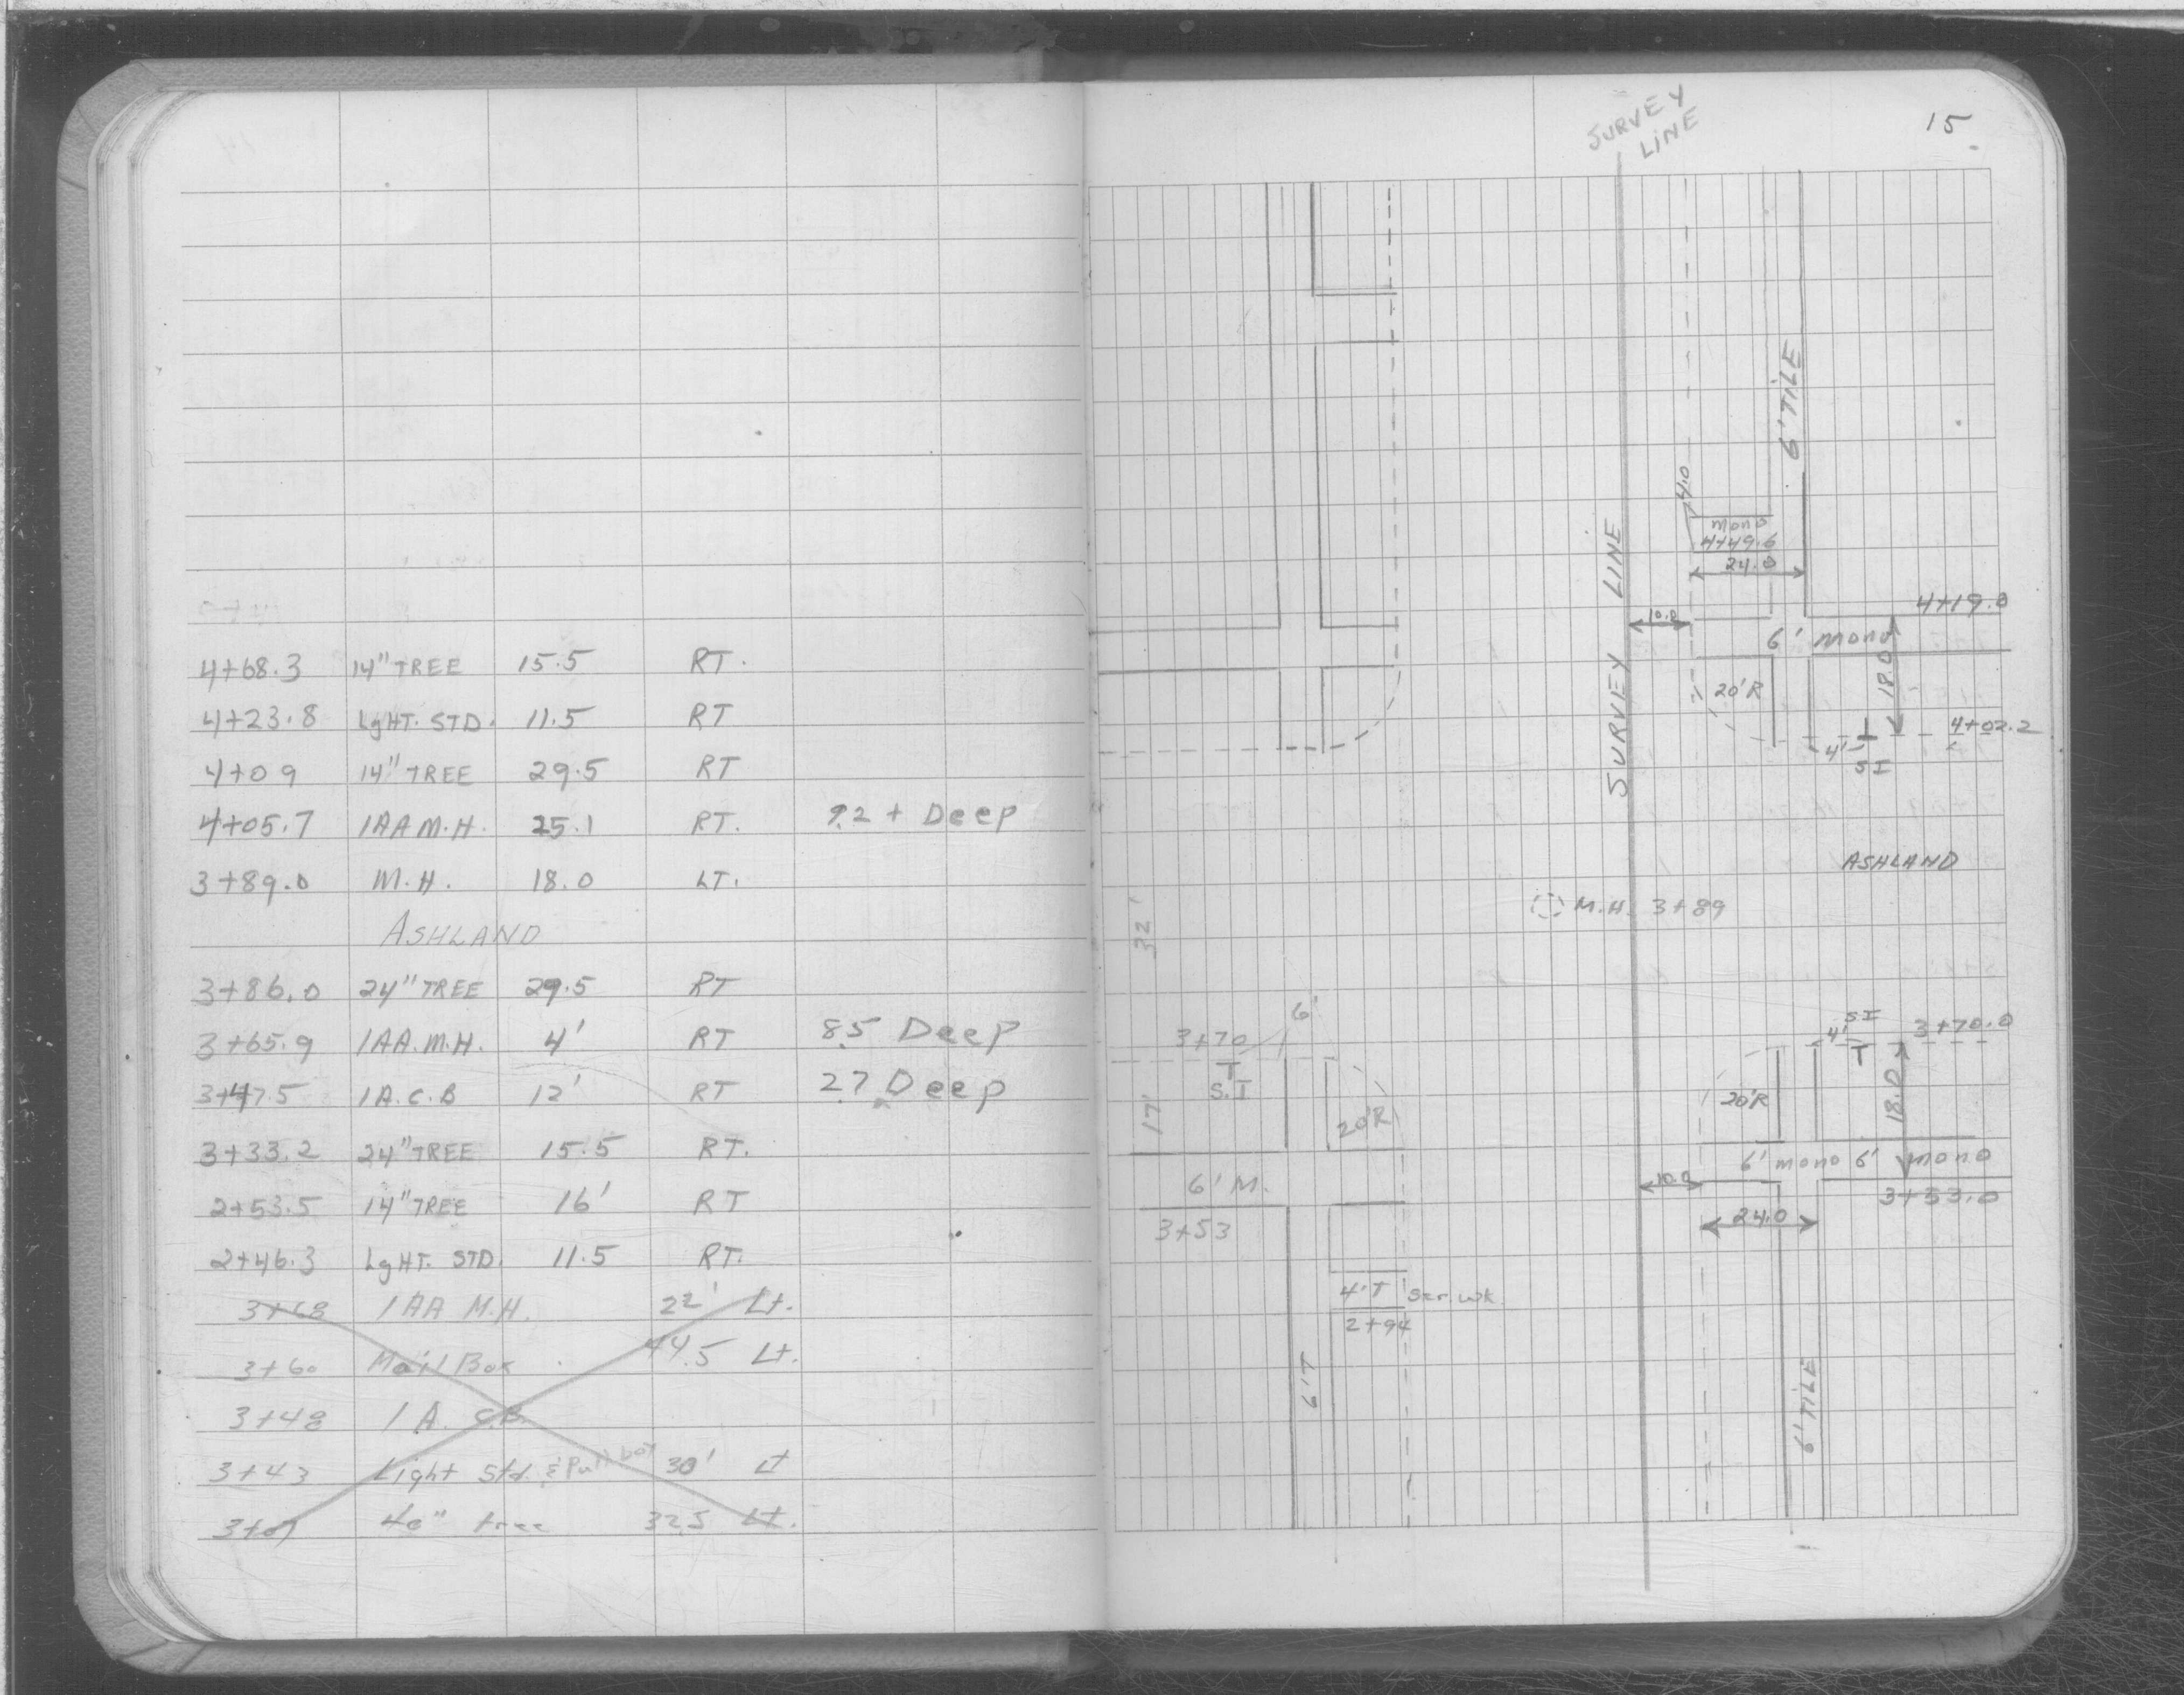 4+68.3 14" TREE 15.5 RT.
4+23.8 LgHT. STD. 11.5 RT
4+09 14" TREE 29.5 RT
4+05.7 1AA M.H. 25.1 RT. 9.2 + Deep
3+89.0 M.H. 18.0 LT.
ASHLAND
3+86.0 24" TREE 29.5 RT
3+65.9 1AA.M.H. 4' RT 8.5 Deep
3+47.5 1A.C.B 12' RT 2.7 Deep
3+33.2 24" TREE 15.5 RT.
2+53.5 14" TREE 16' RT
2+46.3 LgHT. STD. 11.5 RT.
3+68 1AA M.H. 22' Lt.
3+60 Mail Box 44.5 Lt.
3+48 1A. C.B.
3+43 Light Std. & Pull box 30' Lt
3+07 40" tree 32.5 Lt.
15
SURVEY
LINE
6' TILE
4.0
mono
4+49.6
24.0
SURVEY LINE
10.0
4+19.0
6' mono
18.0
20'R
4+02.2
4'
S I
ASHLAND
M.H. 3+89
32'
6'
3+70
T
S.I
17'
20'R
6' M.
3+53
4'T Ser. wk.
2+94
6'T
S I
4'
T
3+70.0
20'R
18.0
6' mono 6' mono
10.0
3+53.0
24.0
6' TILE